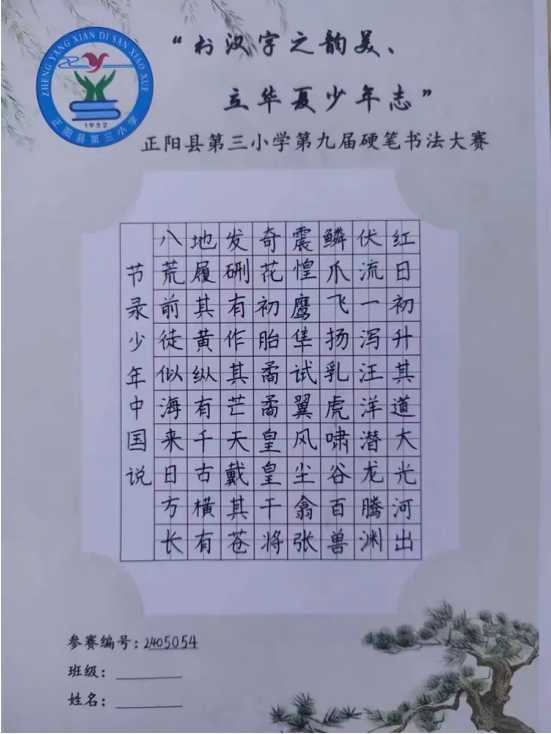 ZHENG YANG XIAN DI SAN XIAO XUE
1952
正阳县第三小学
“书汉字之韵美、
立华夏少年志”
正阳县第三小学第九届硬笔书法大赛
红日初升其道大光河出
伏流一泻汪洋潜龙腾渊
鳞爪飞扬乳虎啸谷百兽
震惶鹰隼试翼风尘翕张
奇花初胎矞矞皇皇干将
发硎有作其芒天戴其苍
地履其黄纵有千古横有
八荒前徒似海来日方长
节录少年中国说
参赛编号：2405054
班级：
姓名：